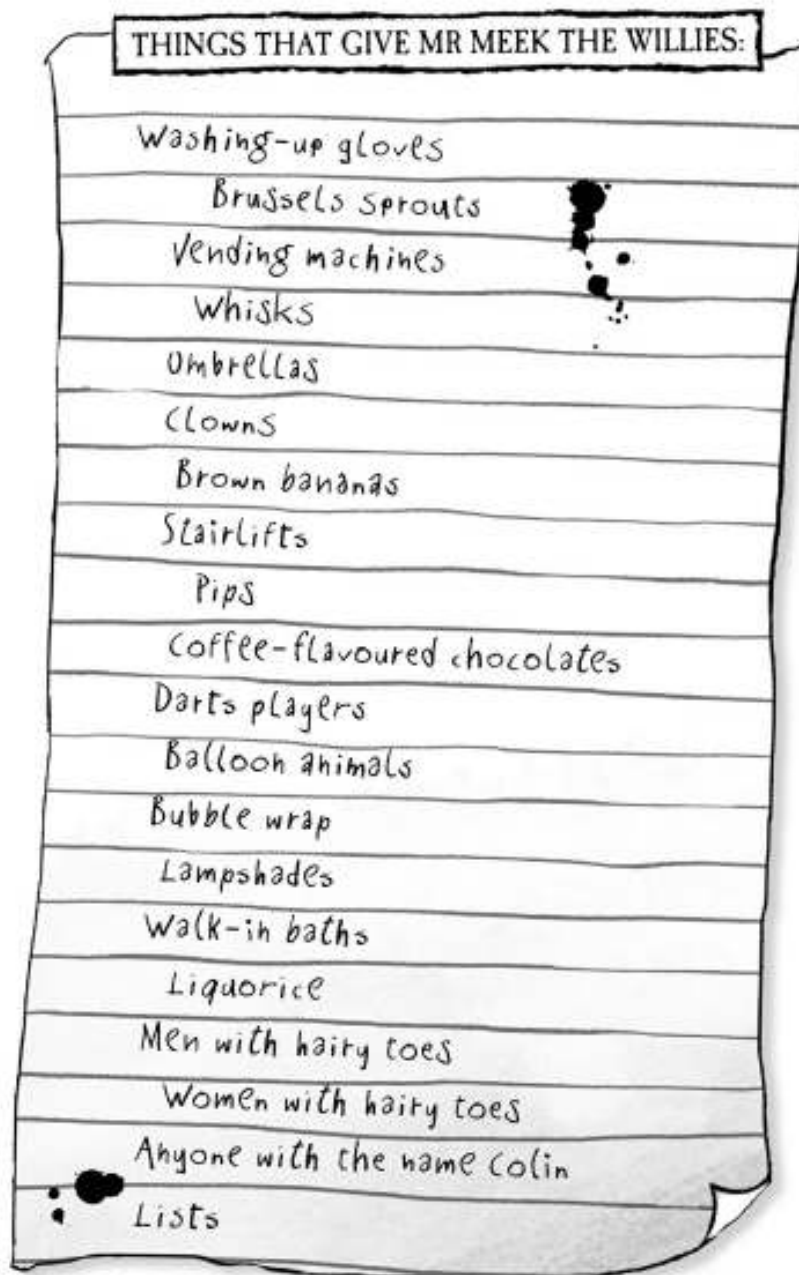 THINGS THAT GIVE MR MEEK THE WILLIES:
Washing-up gloves
Brussels sprouts
Vending machines
Whisks
Umbrellas
Clowns
Brown bananas
Stairlifts
Pips
Coffee-flavoured chocolates
Darts players
Balloon animals
Bubble wrap
Lampshades
Walk-in baths
Liquorice
Men with hairy toes
Women with hairy toes
Anyone with the name Colin
Lists